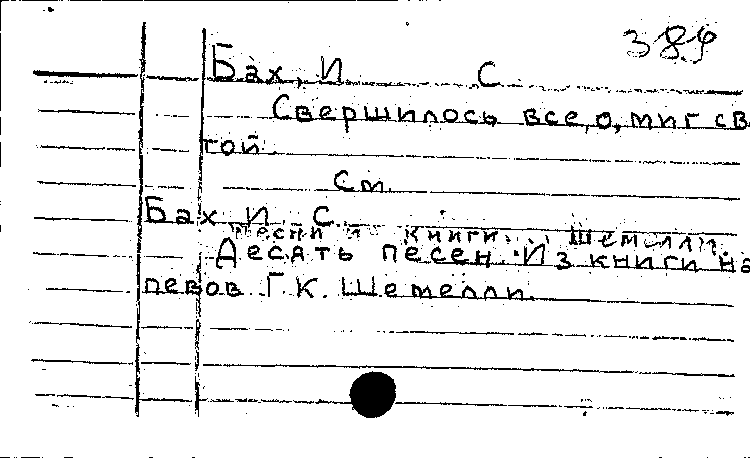 389
Бах, И. С.
Свершилось все, о, миг св
той
См.
Бах И. С.
Песни и книги Шемелли
Десять песен. Из книги на
певов Г. К. Шемелли.